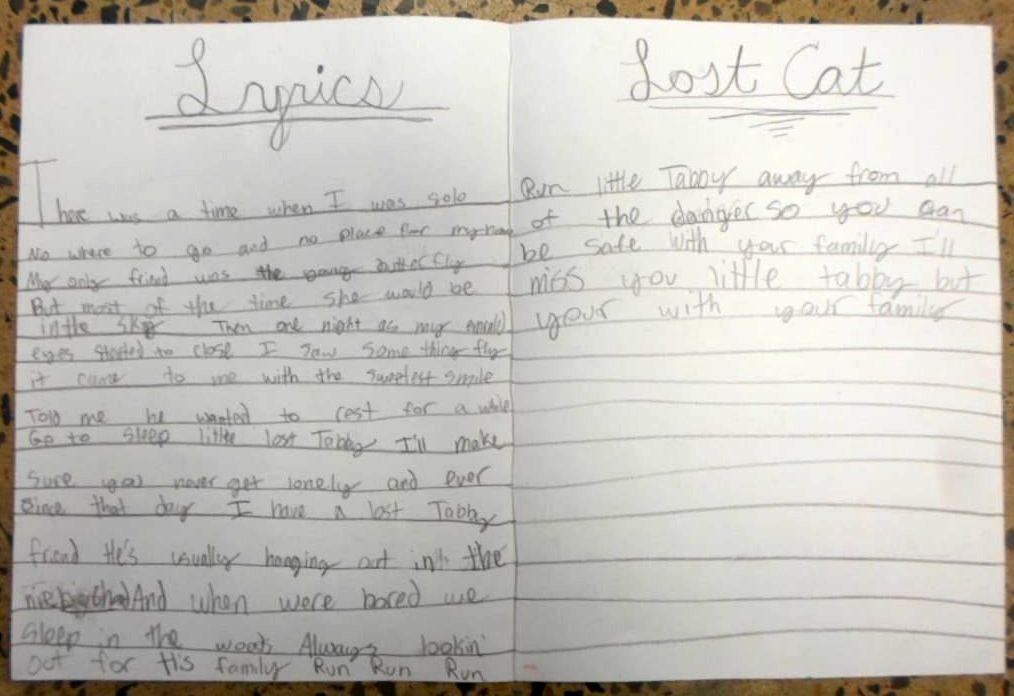 Lyrics
There was a time when I was solo
No where to go and no place for my
My only friend was the young butterfly
But most of the time she would be
in the sky Then one night as my
eyes started to close I saw some thing fly
it came to me with the sweetest smile
Told me he wanted to rest for a while
Go to sleep little lost Tabby I'll make
Sure you never get lonely and ever
Since that day I have a lost Tabby
friend He's usually hanging out in the
And when were bored we
Sleep in the woods Always lookin'
out for his family Run Run Run
Lost Cat
Run little Tabby away from all
of the danger so you can
be safe with your family I'll
miss you little tabby but
your with your family